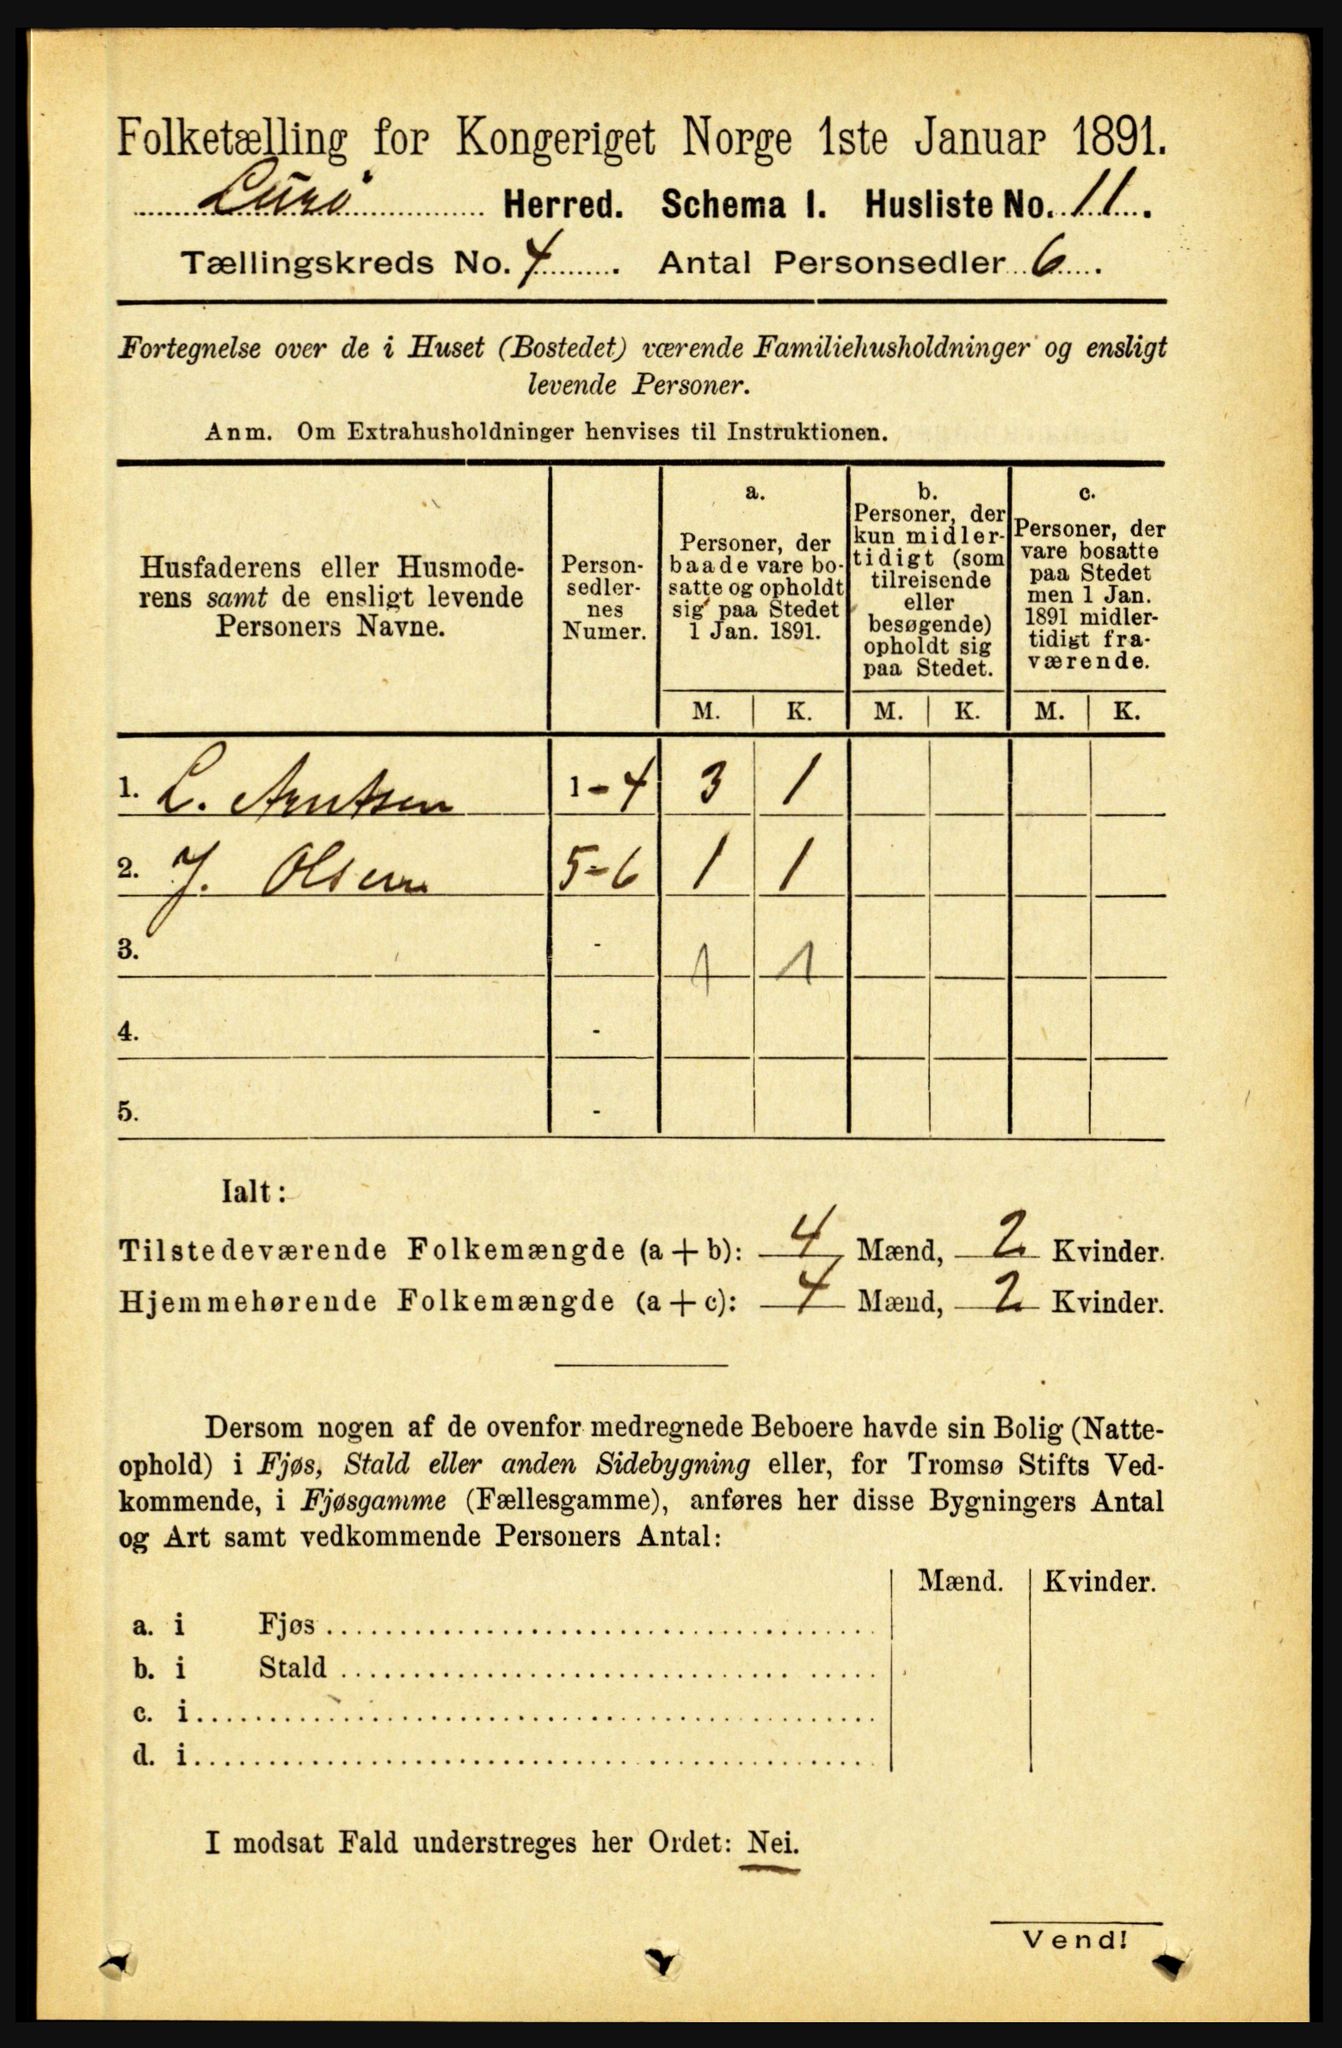 Folketælling for Kongeriget Norge 1ste Januar 1891.
Lurø Herred. Schema I. Husliste No. 11.
Tællingskreds No. 4. Antal Personsedler 6.
Fortegnelse over de i Huset (Bostedet) værende Familiehusholdninger og ensligt
levende Personer.
Anm. Om Extrahusholdninger henvises til Instruktionen.
Husfaderens eller Husmode-
rens samt de ensligt levende
Personers Navne.
Person-
sedler-
nes
Numer.
a.
Personer, der
baade vare bo-
satte og opholdt
sig paa Stedet
1 Jan. 1891.
b.
Personer, der
kun midler-
tidigt (som
tilreisende
eller
besøgende)
opholdt sig
paa Stedet.
c.
Personer, der
vare bosatte
paa Stedet
men 1 Jan.
1891 midler-
tidigt fra-
værende.
M. K. M. K. M. K.
1. L. Arntsen 1-4 3 1
2. J. Olsen 5-6 1 1
3. - 1 1
4. -
5. -
Ialt:
Tilstedeværende Folkemængde (a + b): 4 Mænd, 2 Kvinder.
Hjemmehørende Folkemængde (a + c): 4 Mænd, 2 Kvinder.
Dersom nogen af de ovenfor medregnede Beboere havde sin Bolig (Natte-
ophold) i Fjøs, Stald eller anden Sidebygning eller, for Tromsø Stifts Ved-
kommende, i Fjøsgamme (Fællesgamme), anføres her disse Bygningers Antal
og Art samt vedkommende Personers Antal:
Mænd. Kvinder.
a. i Fjøs
b. i Stald
c. i
d. i
I modsat Fald understreges her Ordet: Nei.
Vend!